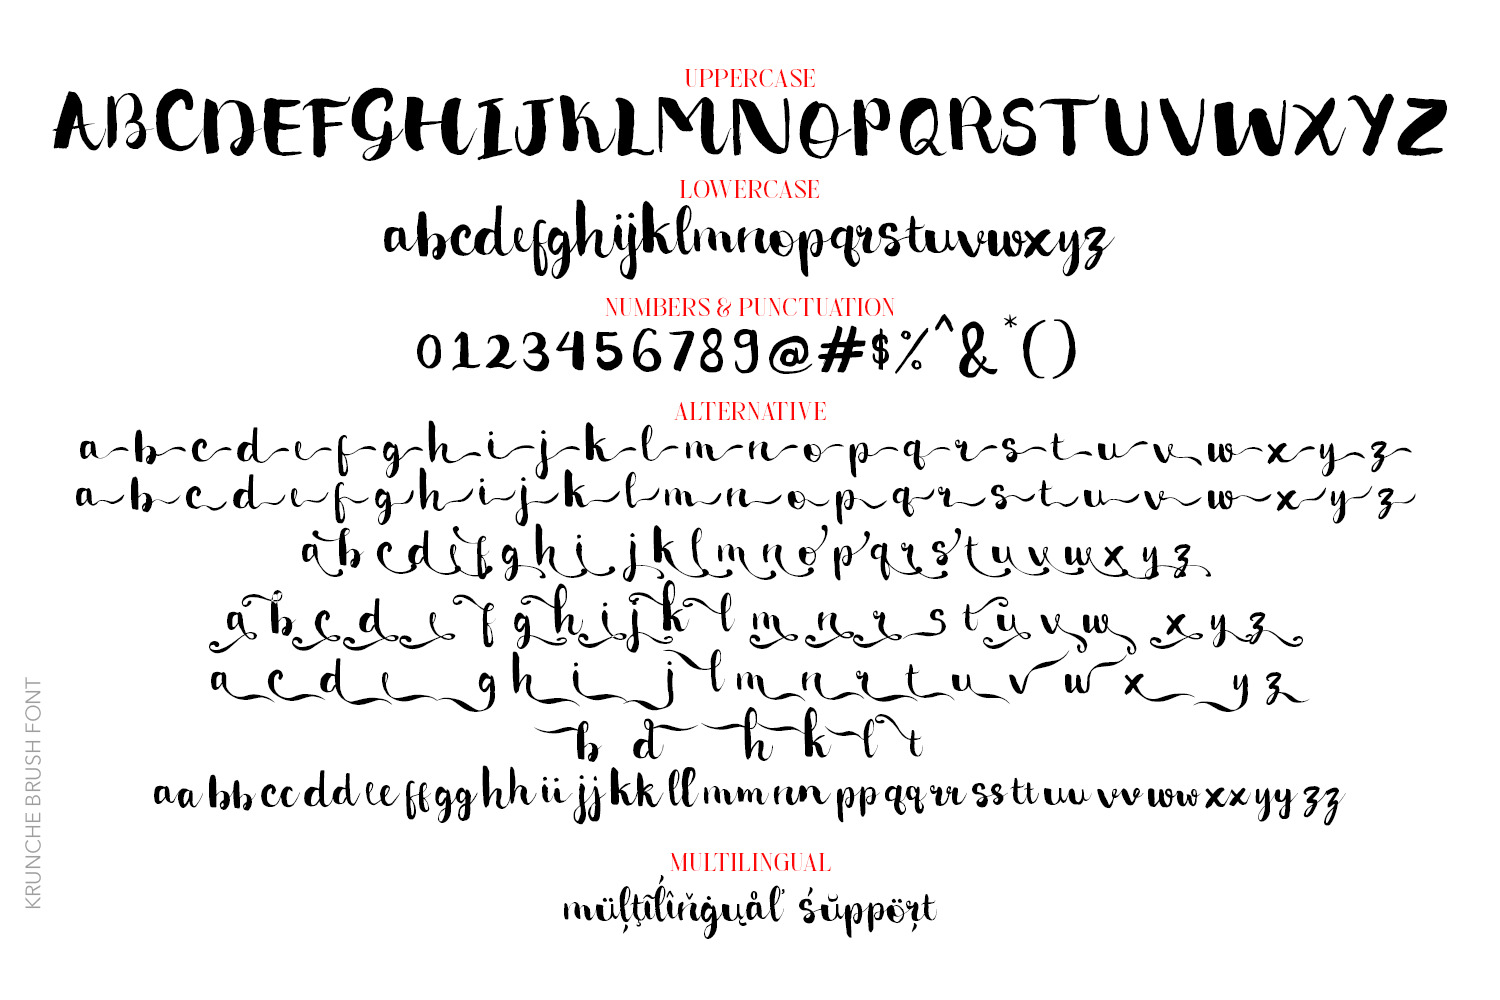 UPPERCASE
ABCDEFGHIJKLMNOPQRSTUVWXYZ
LOWERCASE
abcdefghijklmnopqrstuvwxyz
NUMBERS & PUNCTUATION
0123456789@#$%^&*()
ALTERNATIVE
a b c d e f g h i j k l m n o p q r s t u v w x y z
a b c d e f g h i j k l m n o p q r s t u v w x y z
a b c d e f g h i j k l m n o p q r s t u v w x y z
a b c d e f g h i j k l m n r s t u v w x y z
a c d e g h i j l m n r t u v w x y z
b d h k l t
aa bb cc dd ee ff gg hh ii jj kk ll mm nn pp qq rr ss tt uu vv ww xx yy zz
MULTILINGUAL
müļţīĺîňġųåľ śŭppöŗt
KRUNCHE BRUSH FONT